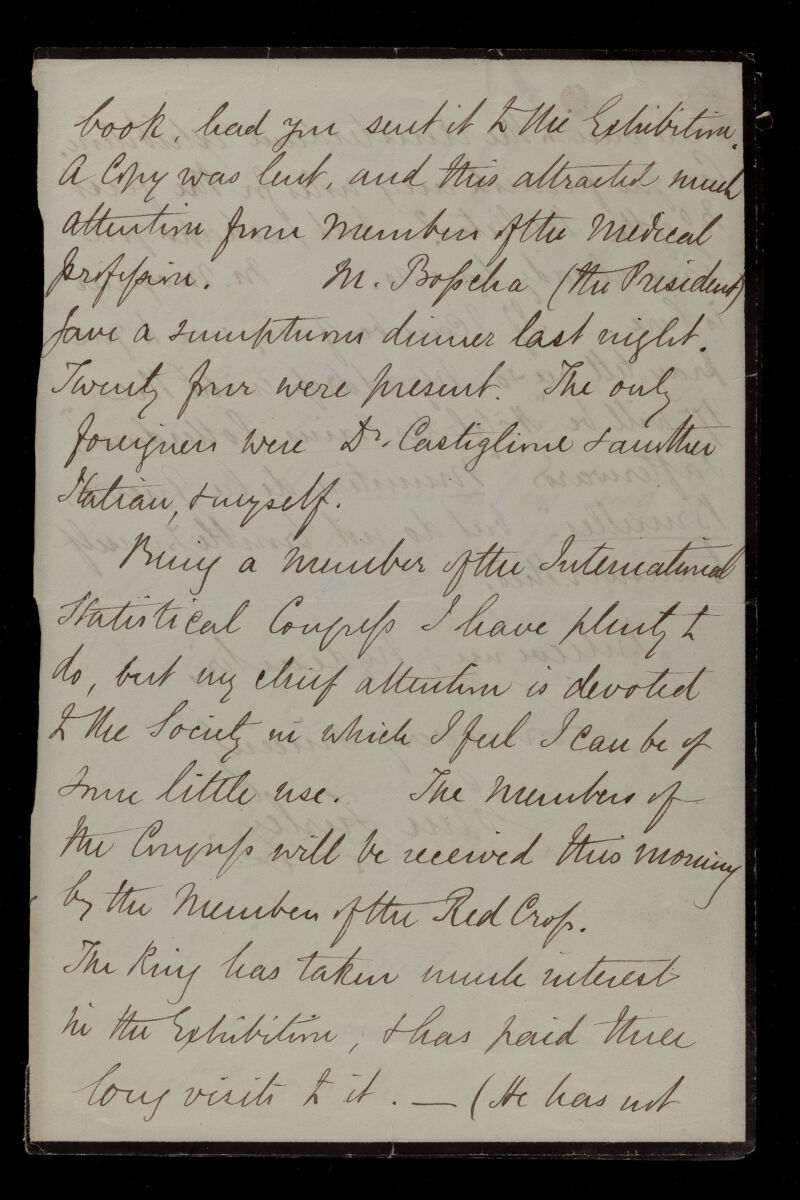 book, had you sent it to the Exhibition.
A Copy was lent, and this attracted much
attention from Members of the Medical
profession. M. Bosscha (the President)
gave a sumptuous dinner last night.
Twenty four were present. The only
foreigners were Dr. Castiglione & another
Italian, & myself.
Being a member of the International
Statistical Congress I have plenty to
do, but my chief attention is devoted
to the Society in which I feel I can be of
some little use. The Members of
the Congress will be received this morning
by the Members of the Red Cross.
The King has taken much interest
in the Exhibition, & has paid three
long visits to it. — (He has not